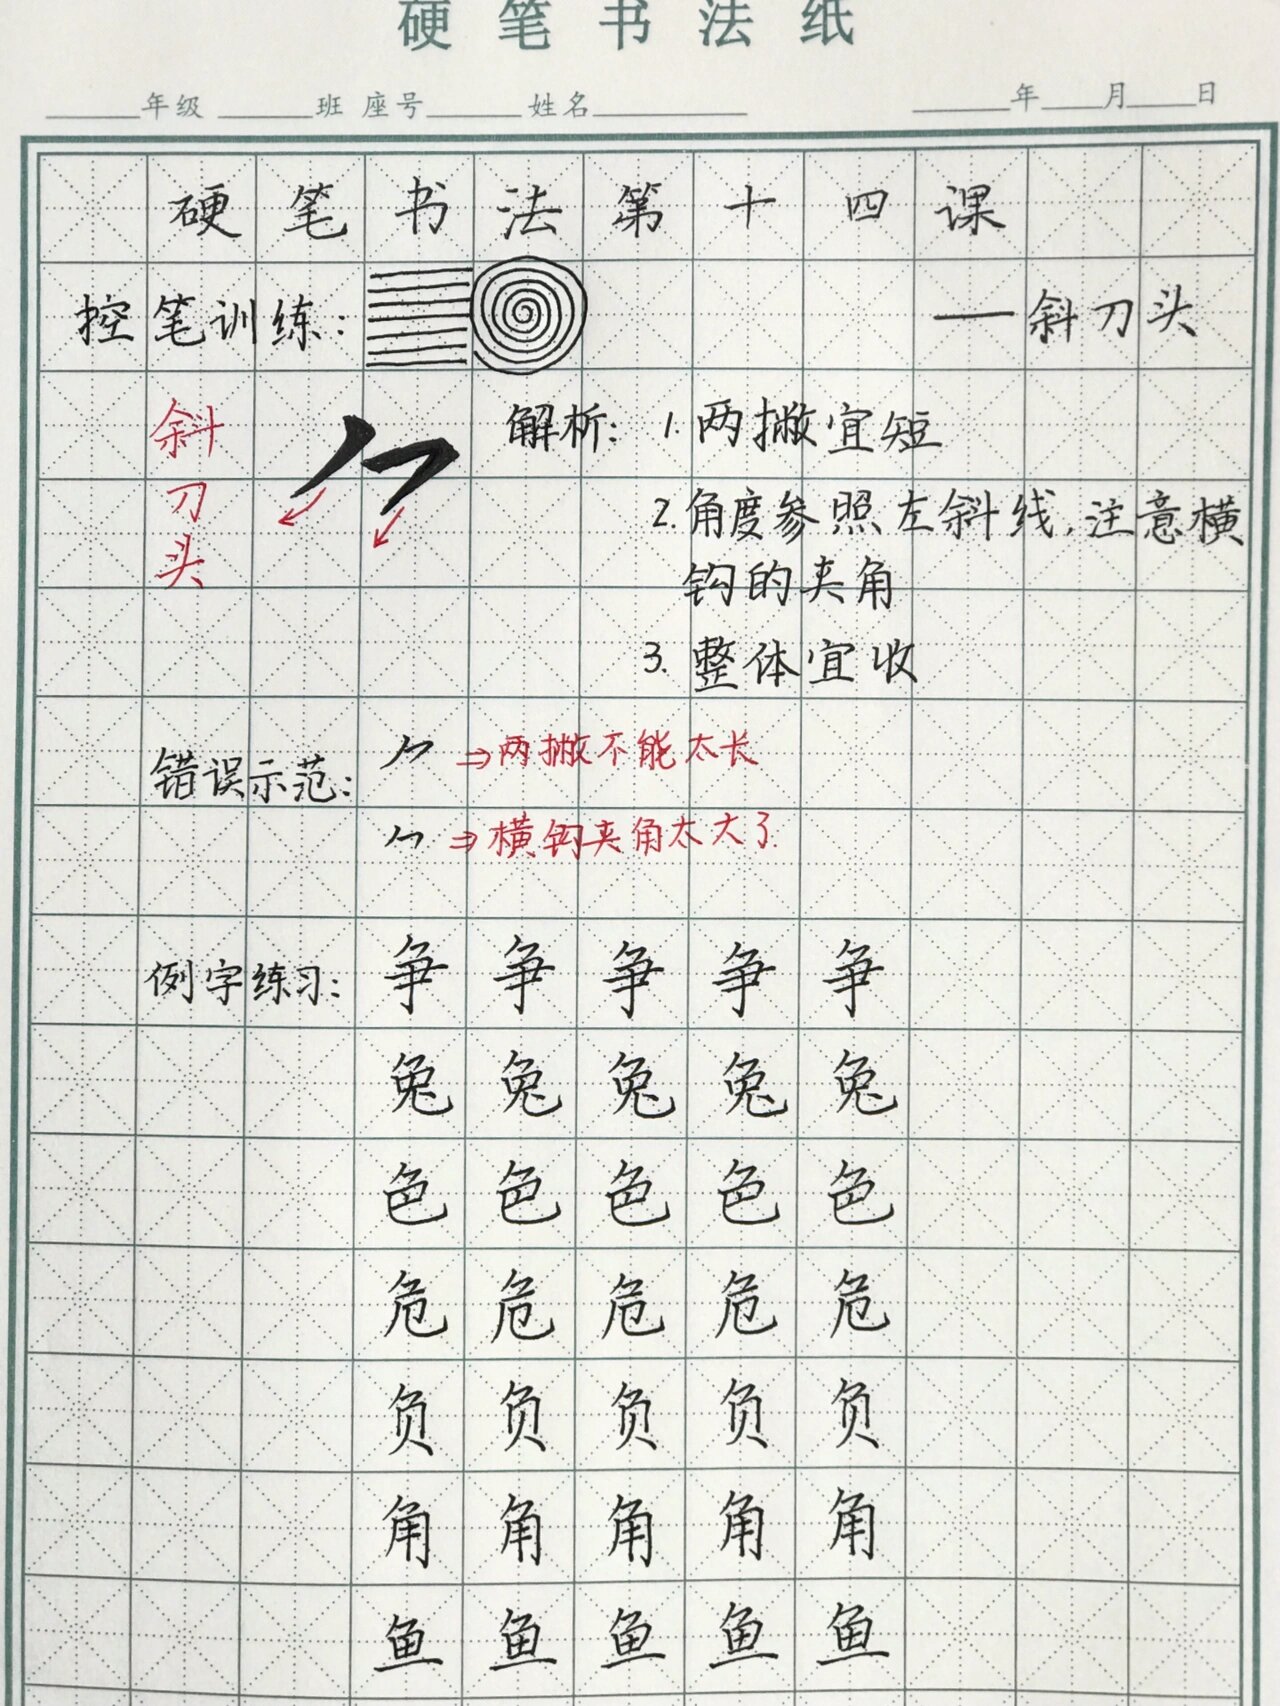 硬笔书法纸
年级 班 座号 姓名 年 月 日
硬笔书法第十四课
控笔训练： —斜刀头
斜刀头
解析：1.两撇宜短
2.角度参照左斜线，注意横
钩的夹角
3.整体宜收
错误示范： ⇒两撇不能太长
⇒横钩夹角太大了.
例字练习：争争争争争
兔兔兔兔兔
色色色色色
危危危危危
负负负负负
角角角角角
鱼鱼鱼鱼鱼